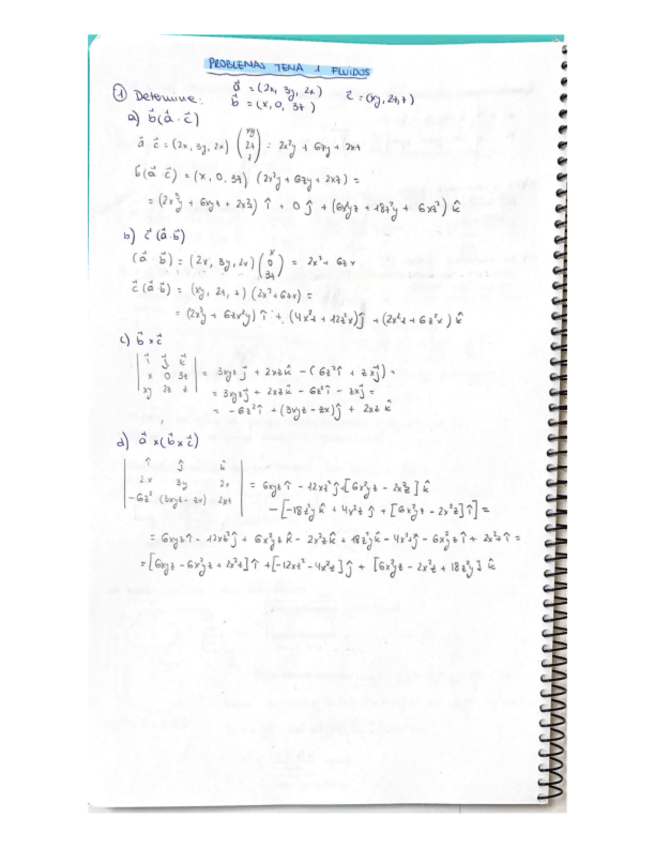 PROBLEMAS TEMA 1 FLUIDOS
① Determine: a⃗ = (2x, 3y, 2x) c⃗ = (xy, 2z, z)
b⃗ = (x, 0, 3z)
a) b⃗(a⃗·c⃗)
a⃗ c⃗ = (2x, 3y, 2x) (xy 2z z) = 2x²y + 6zy + 2xz
b(a⃗ c⃗) = (x, 0, 3z) (2x²y + 6zy + 2xz) =
= (2x³y + 6xyz + 2x²z) î + 0 ĵ + (6x²yz + 18z²y + 6xz²) k̂
b) c⃗(a⃗·b⃗)
(a⃗·b⃗) = (2x, 3y, 2x) (x 0 3z) = 2x² + 6zx
c⃗(a⃗ b⃗) = (xy, 2z, z) (2x² + 6zx) =
= (2x³y + 6zx²y) î + (4x²z + 12z²x) ĵ + (2x²z + 6z²x) k̂
c) b⃗ x c⃗
| î ĵ k̂ |
| x 0 3z | = 3xyz ĵ + 2xz k̂ - (6z² î + zx ĵ) =
| xy 2z z | = 3xyz ĵ + 2xz k̂ - 6z² î - zx ĵ =
= -6z² î + (3xyz - zx) ĵ + 2xz k̂
d) a⃗ x (b⃗ x c⃗)
| î ĵ k̂ |
| 2x 3y 2x | = 6xyz î - 12xz² ĵ [6x²yz - 2x²z] k̂
| -6z² (3xyz - zx) 2xz | - [-18z²y k̂ + 4x²z ĵ + [6x²yz - 2x²z] î] =
= 6xyz î - 12xz² ĵ + 6x²yz k̂ - 2x²z k̂ + 18z²y k̂ - 4x²z ĵ - 6x²yz î + 2x²z î =
= [6xyz - 6x²yz + 2x²z] î + [-12xz² - 4x²z] ĵ + [6x²yz - 2x²z + 18z²y] k̂